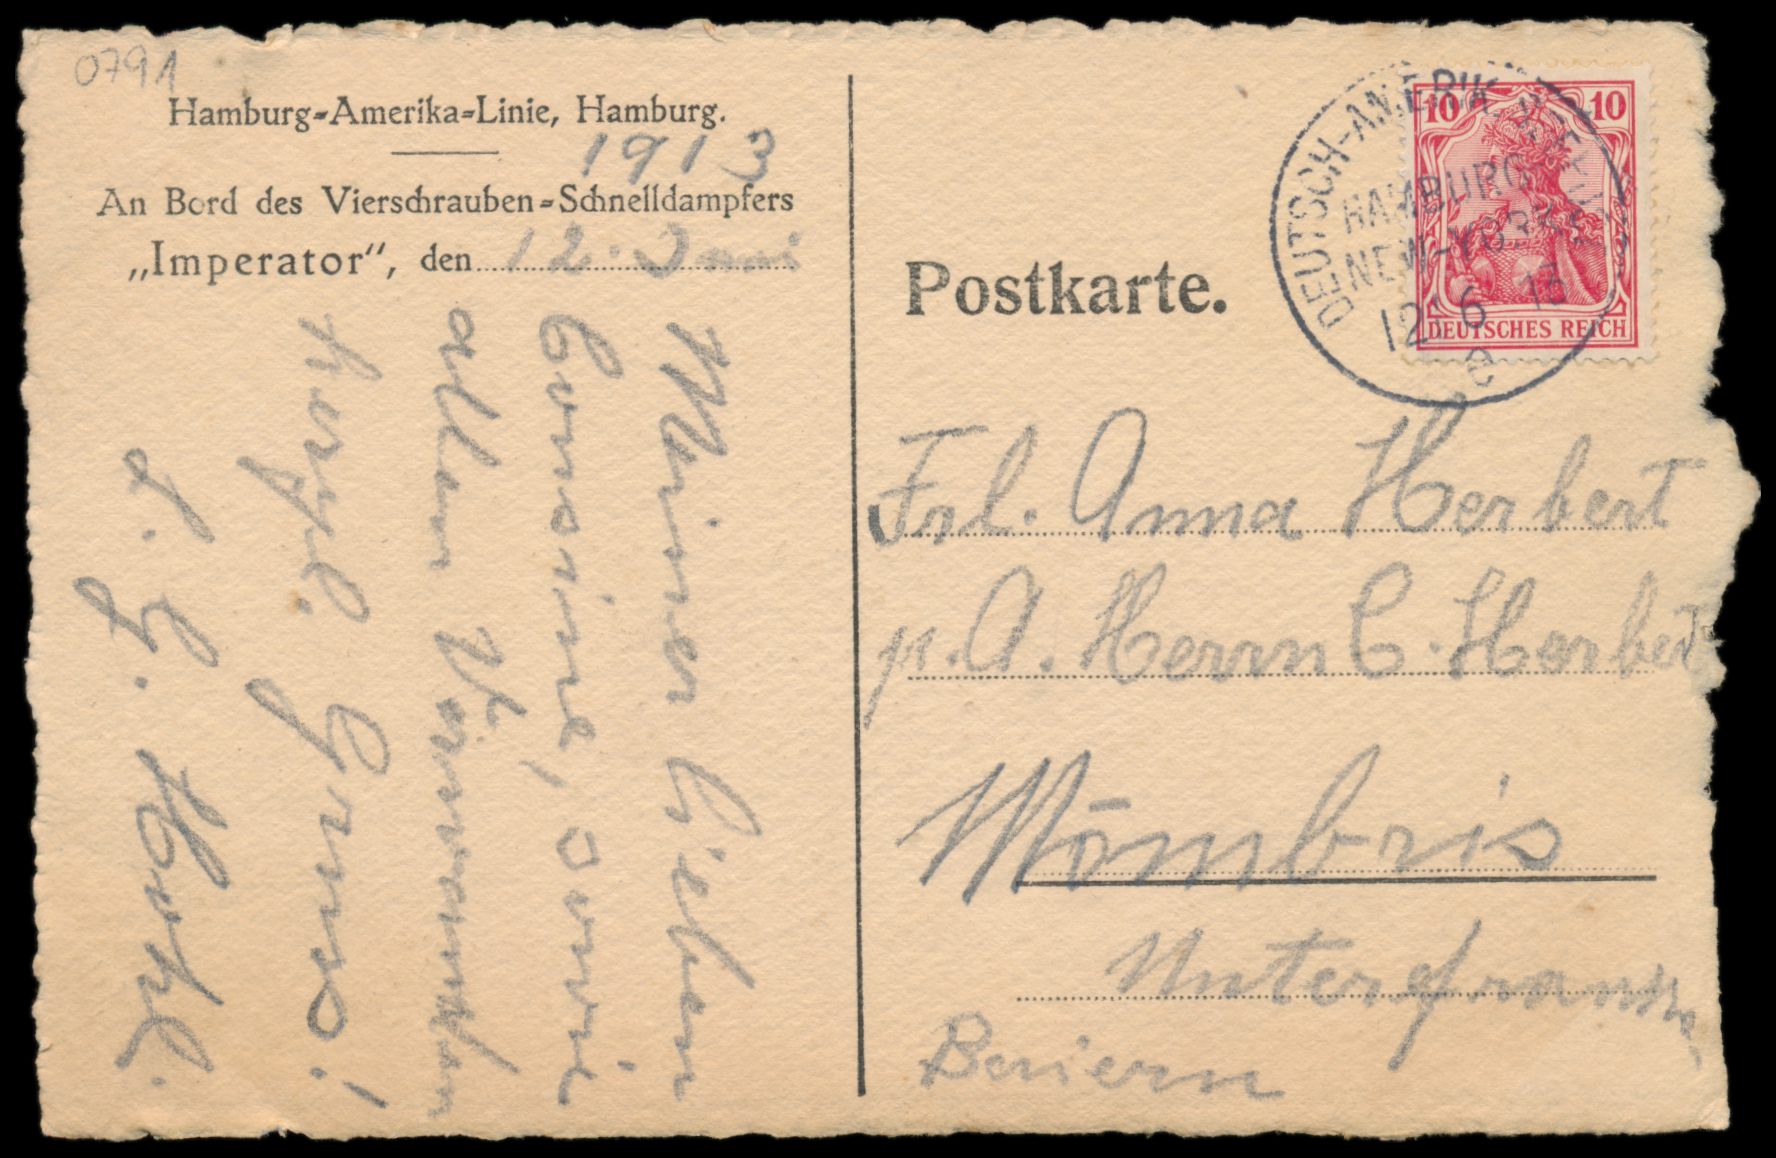 0791
Hamburg-Amerika-Linie, Hamburg.
1913
An Bord des Vierschrauben-Schnelldampfers
„Imperator“, den 12. Juni
Meiner lieben
Cousine, sowie
allen Verwandten
herzl. Gruss!
J. G. Herbt.
Postkarte.
DEUTSCH-AMERIK. SEEPOST
HAMBURG
NEW-YORK
12 6 13
a
10 10
DEUTSCHES REICH
Frl. Anna Herbert
p. A. Herrn C. Herbert
Mömbris
Unterfranken
Beiern